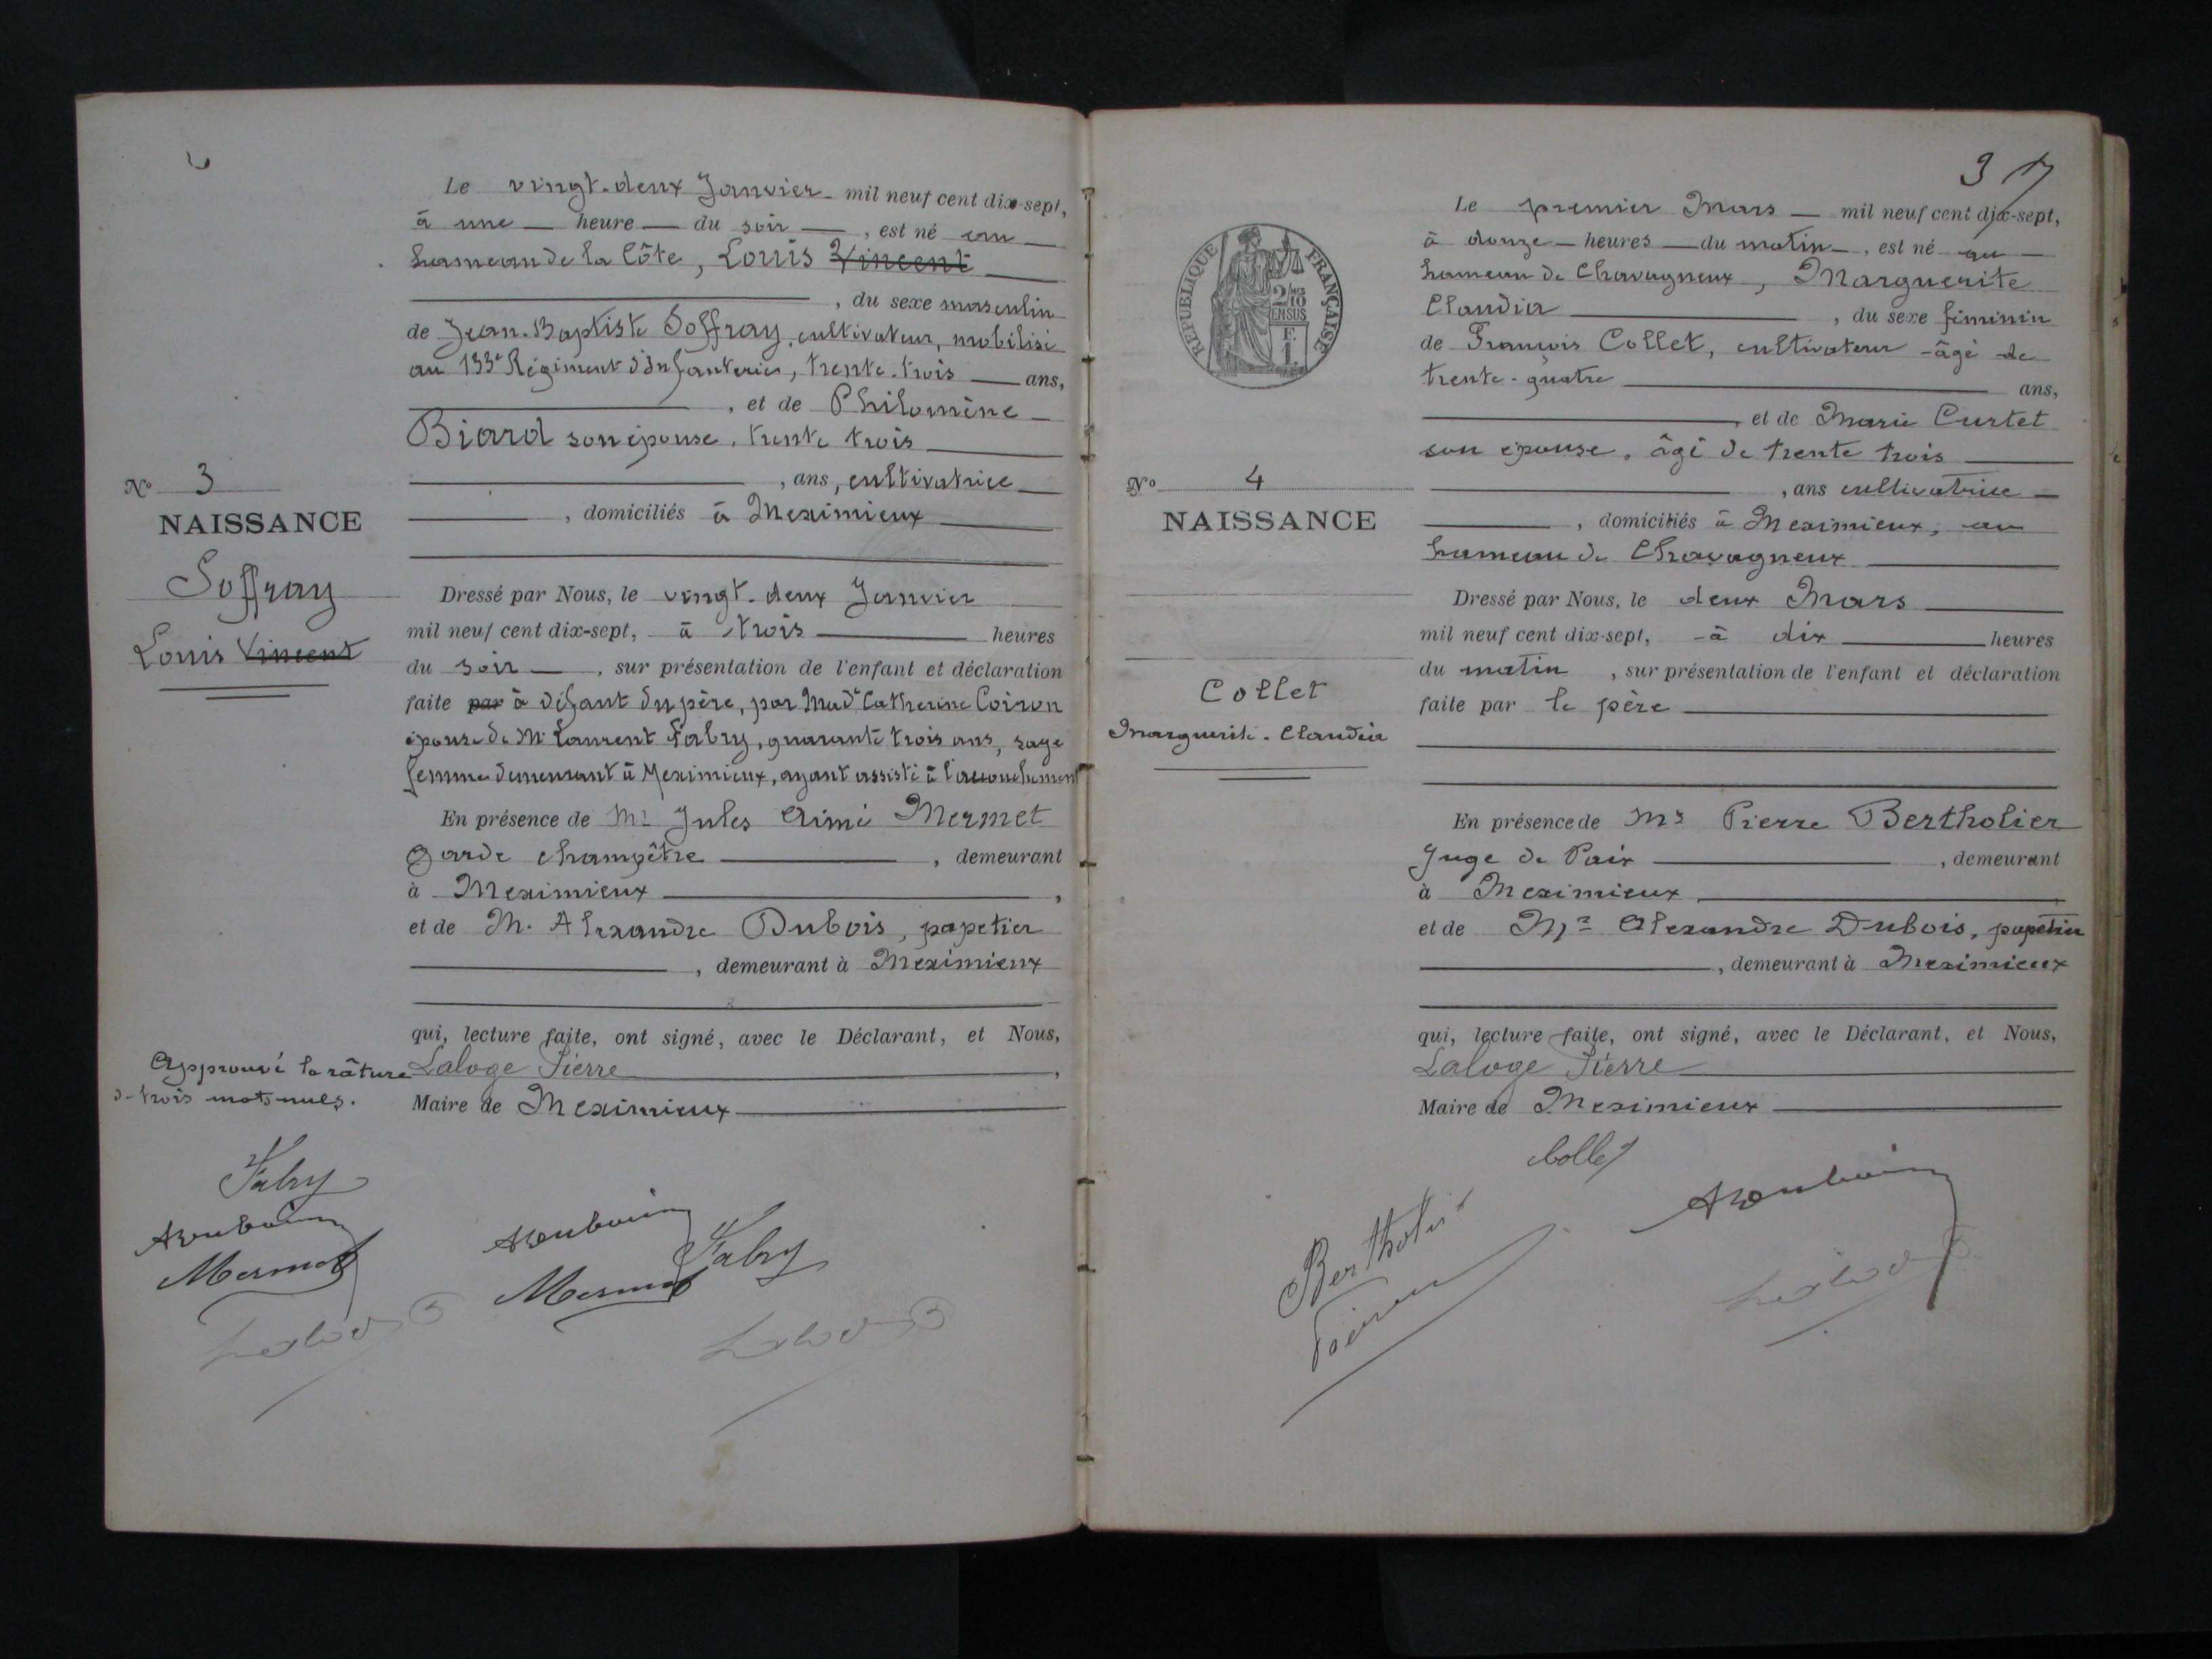 6
Le vingt-deux Janvier mil neuf cent dix-sept,
à une heure du soir, est né au
hameau de la Côte, Louis Vincent
, du sexe masculin
de Jean-Baptiste Soffray, cultivateur, mobilisé
au 133e Régiment d'Infanterie, trente-trois ans,
, et de Philomène
Biard son épouse, trente trois
, ans, cultivatrice
, domiciliés à Meximieux
No 3
NAISSANCE
Soffray
Louis Vincent
Dressé par Nous, le vingt-deux Janvier
mil neuf cent dix-sept, à trois heures
du soir, sur présentation de l'enfant et déclaration
faite par à défaut du père, par Made Catherine Coiron
épouse de Mr Laurent Fabry, quarante trois ans, sage
femme demeurant à Meximieux, ayant assisté à l'accouchement
En présence de Mr Jules Aimé Mermet
garde champêtre, demeurant
à Meximieux,
et de M. Alexandre Dubois, papetier
, demeurant à Meximieux
qui, lecture faite, ont signé, avec le Déclarant, et Nous,
Laloge Pierre,
Maire de Meximieux
Approuvé la râture
de trois mots nuls.
Fabry
Mermet
Fabry
Mermet
37
REPUBLIQUE FRANÇAISE
2/10 EN SUS
F. 1.
Le premier Mars mil neuf cent dix-sept,
à douze heures du matin, est né au
hameau de Chavagneux, Marguerite
Claudia, du sexe féminin
de François Collet, cultivateur âgé de
trente-quatre ans,
et de Marie Curtet
son épouse, âgé de trente trois
, ans cultivatrice
, domiciliés à Meximieux, au
hameau de Chavagneux
No 4
NAISSANCE
Collet
Marguerite-Claudia
Dressé par Nous, le deux Mars
mil neuf cent dix-sept, à dix heures
du matin, sur présentation de l'enfant et déclaration
faite par le père
En présence de Mr Pierre Bertholier
Juge de Paix, demeurant
à Meximieux,
et de Mr Alexandre Dubois, papetier
, demeurant à Meximieux
qui, lecture faite, ont signé, avec le Déclarant, et Nous,
Laloge Pierre
Maire de Meximieux
Collet